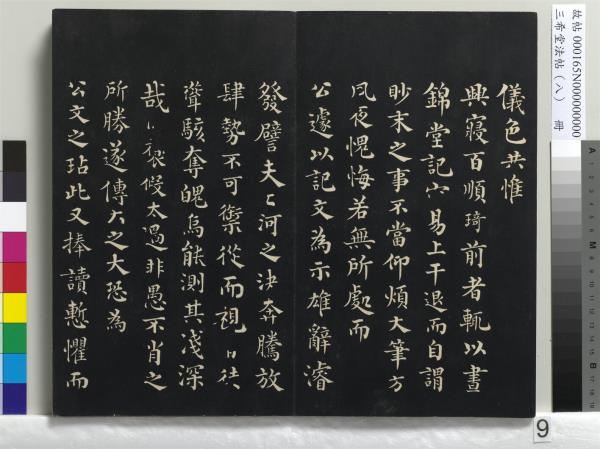 儀色共惟
興寢百順琦前者輒以晝
錦堂記易上干退而自謂
眇末之事不當仰煩大筆方
夙夜愧悔若無所處而
公遽以記文為示雄辭濬
發譬夫河之決奔騰放
肆勢不可禦從而視
聳駭奪魄烏能測其淺深
哉褒假太過非愚不肖之
所勝遂傳之大恐為
公文之玷此又捧讀慙懼而
故帖 000165N000000000
三希堂法帖（八） 冊
A 1 2 3 4 5 6 M 8 9 10 11 12 13 14 15 B 17 18 19
9